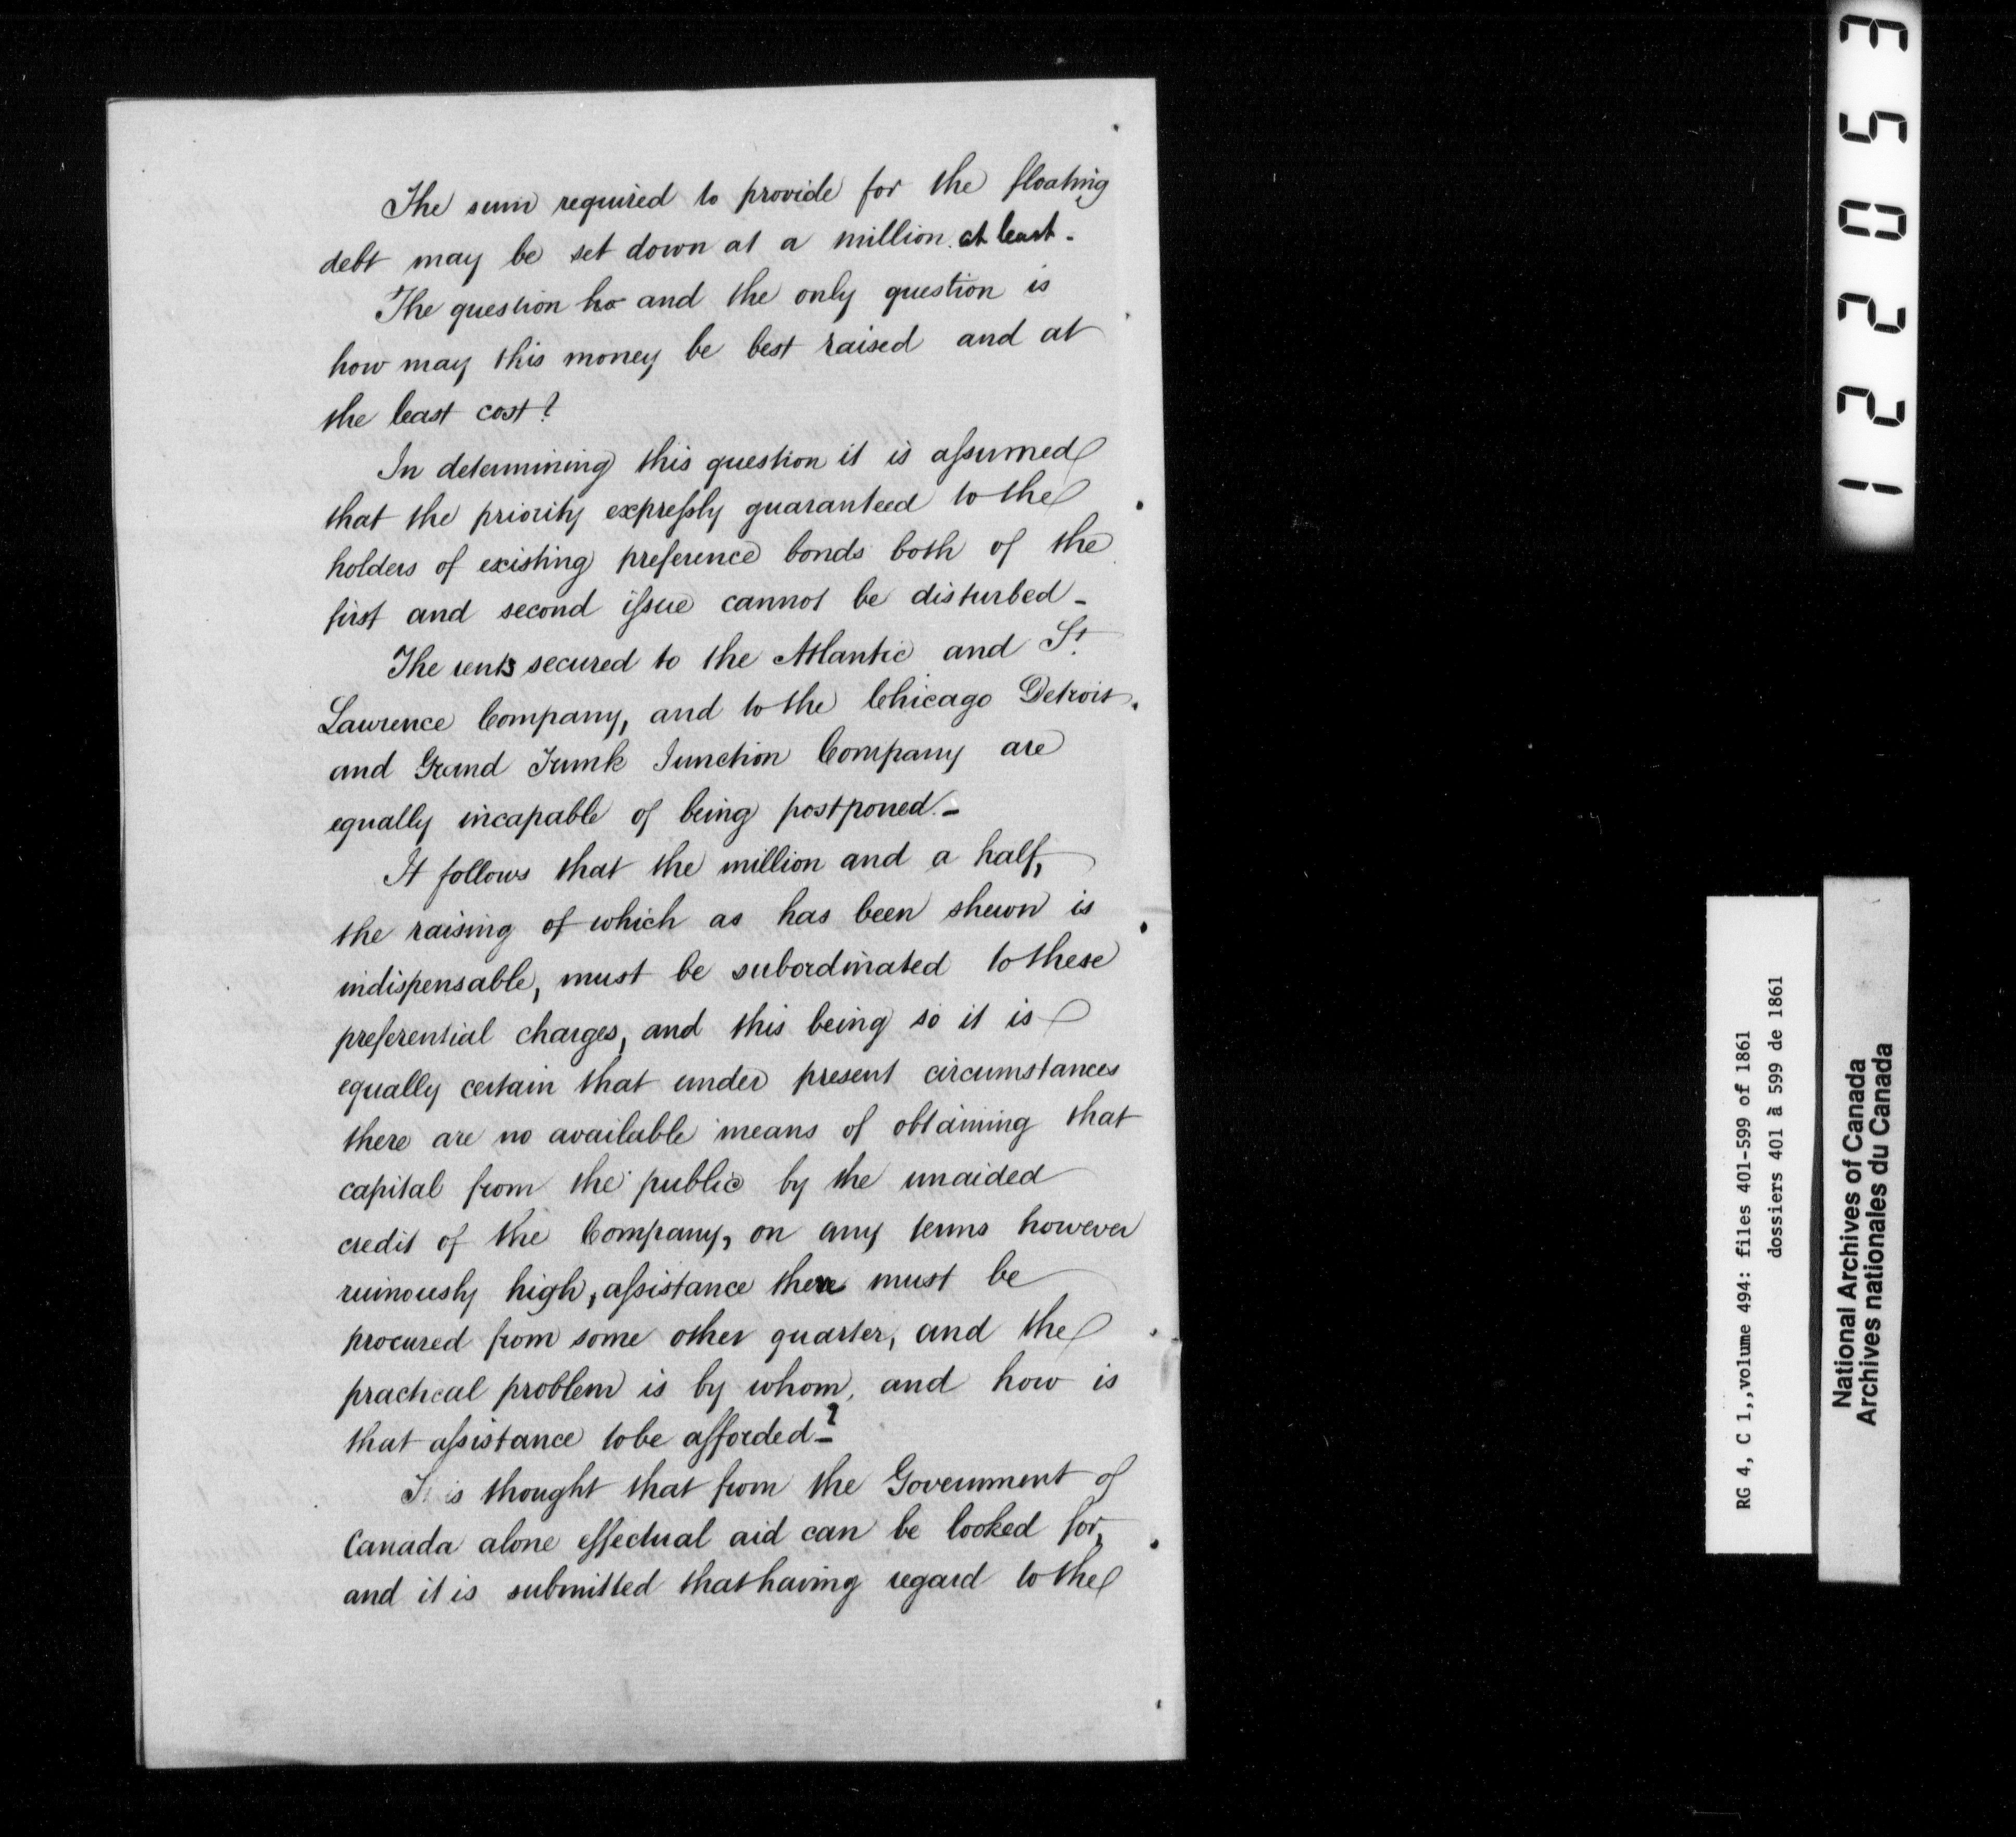 The sum required to provide for the floating
debt may be set down at a million at least -
The question ho and the only question is
how may this money be best raised and at
the least cost?
In determining this question it is aſsumed
that the priority expreſsly guaranteed to the
holders of existing preference bonds both of the
first and second iſsue cannot be disturbed -
The rents secured to the Atlantic and St.
Lawrence Company, and to the Chicago Detroit,
and Grand Trunk Junction Company are
equally incapable of being postponed. -
It follows that the million and a half,
the raising of which as has been shewn is
indispensable, must be subordinated to these
preferential charges, and this being so it is
equally certain that under present circumstances
there are no available means of obtaining that
capital from the public by the unaided
credit of the Company, on any terms however
ruinously high, aſsistance there must be
procured from some other quarter, and the
practical problem is by whom, and how is
that aſsistance to be afforded -?
It is thought that from the Government of
Canada alone effectual aid can be looked for,
and it is submitted that having regard to the
122053
RG 4, C 1,,volume 494: files 401-599 of 1861
dossiers 401 à 599 de 1861
National Archives of Canada
Archives nationales du Canada